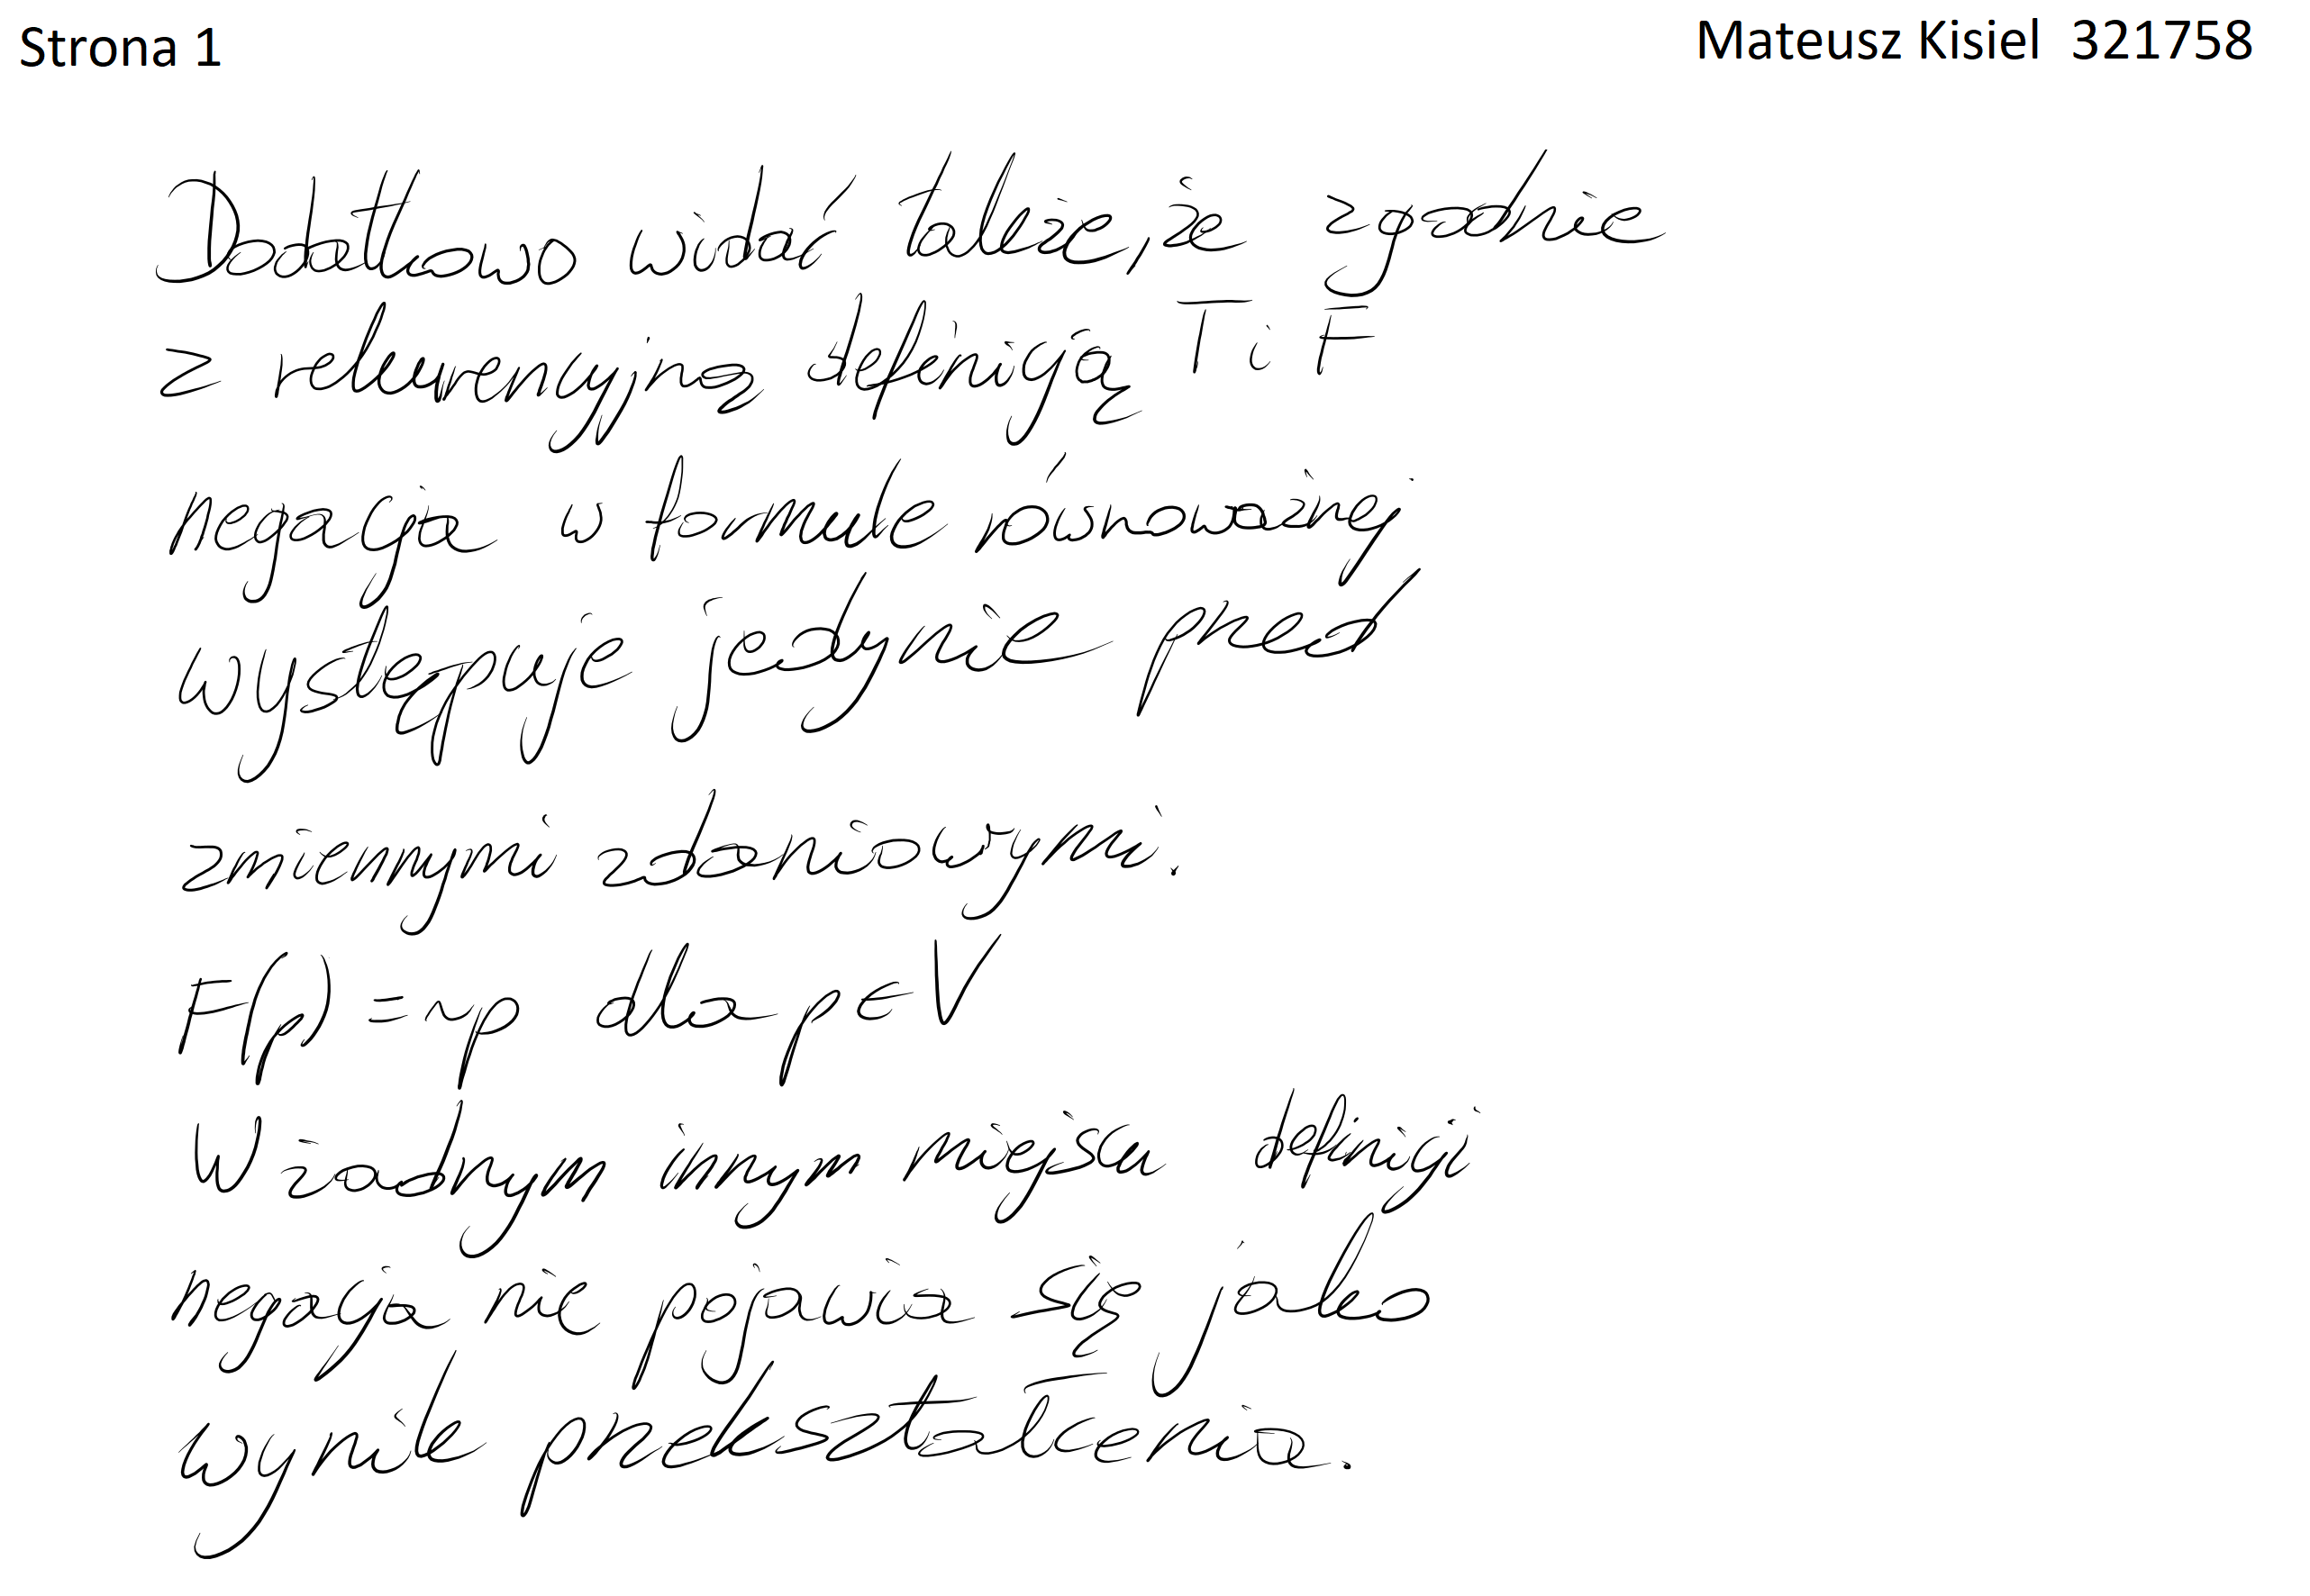 Strona 1
Mateusz Kisiel 321758
Dodatkowo widać także, że zgodnie
z rekurencyjną definicją T i F
negacja w formule równoważnej
występuje jedynie przed
zmiennymi zdaniowymi.
F(p) = ¬p dla p ∈ V
W żadnym innym miejscu definicji
negacja nie pojawia się jako
wynik przekształcenia.